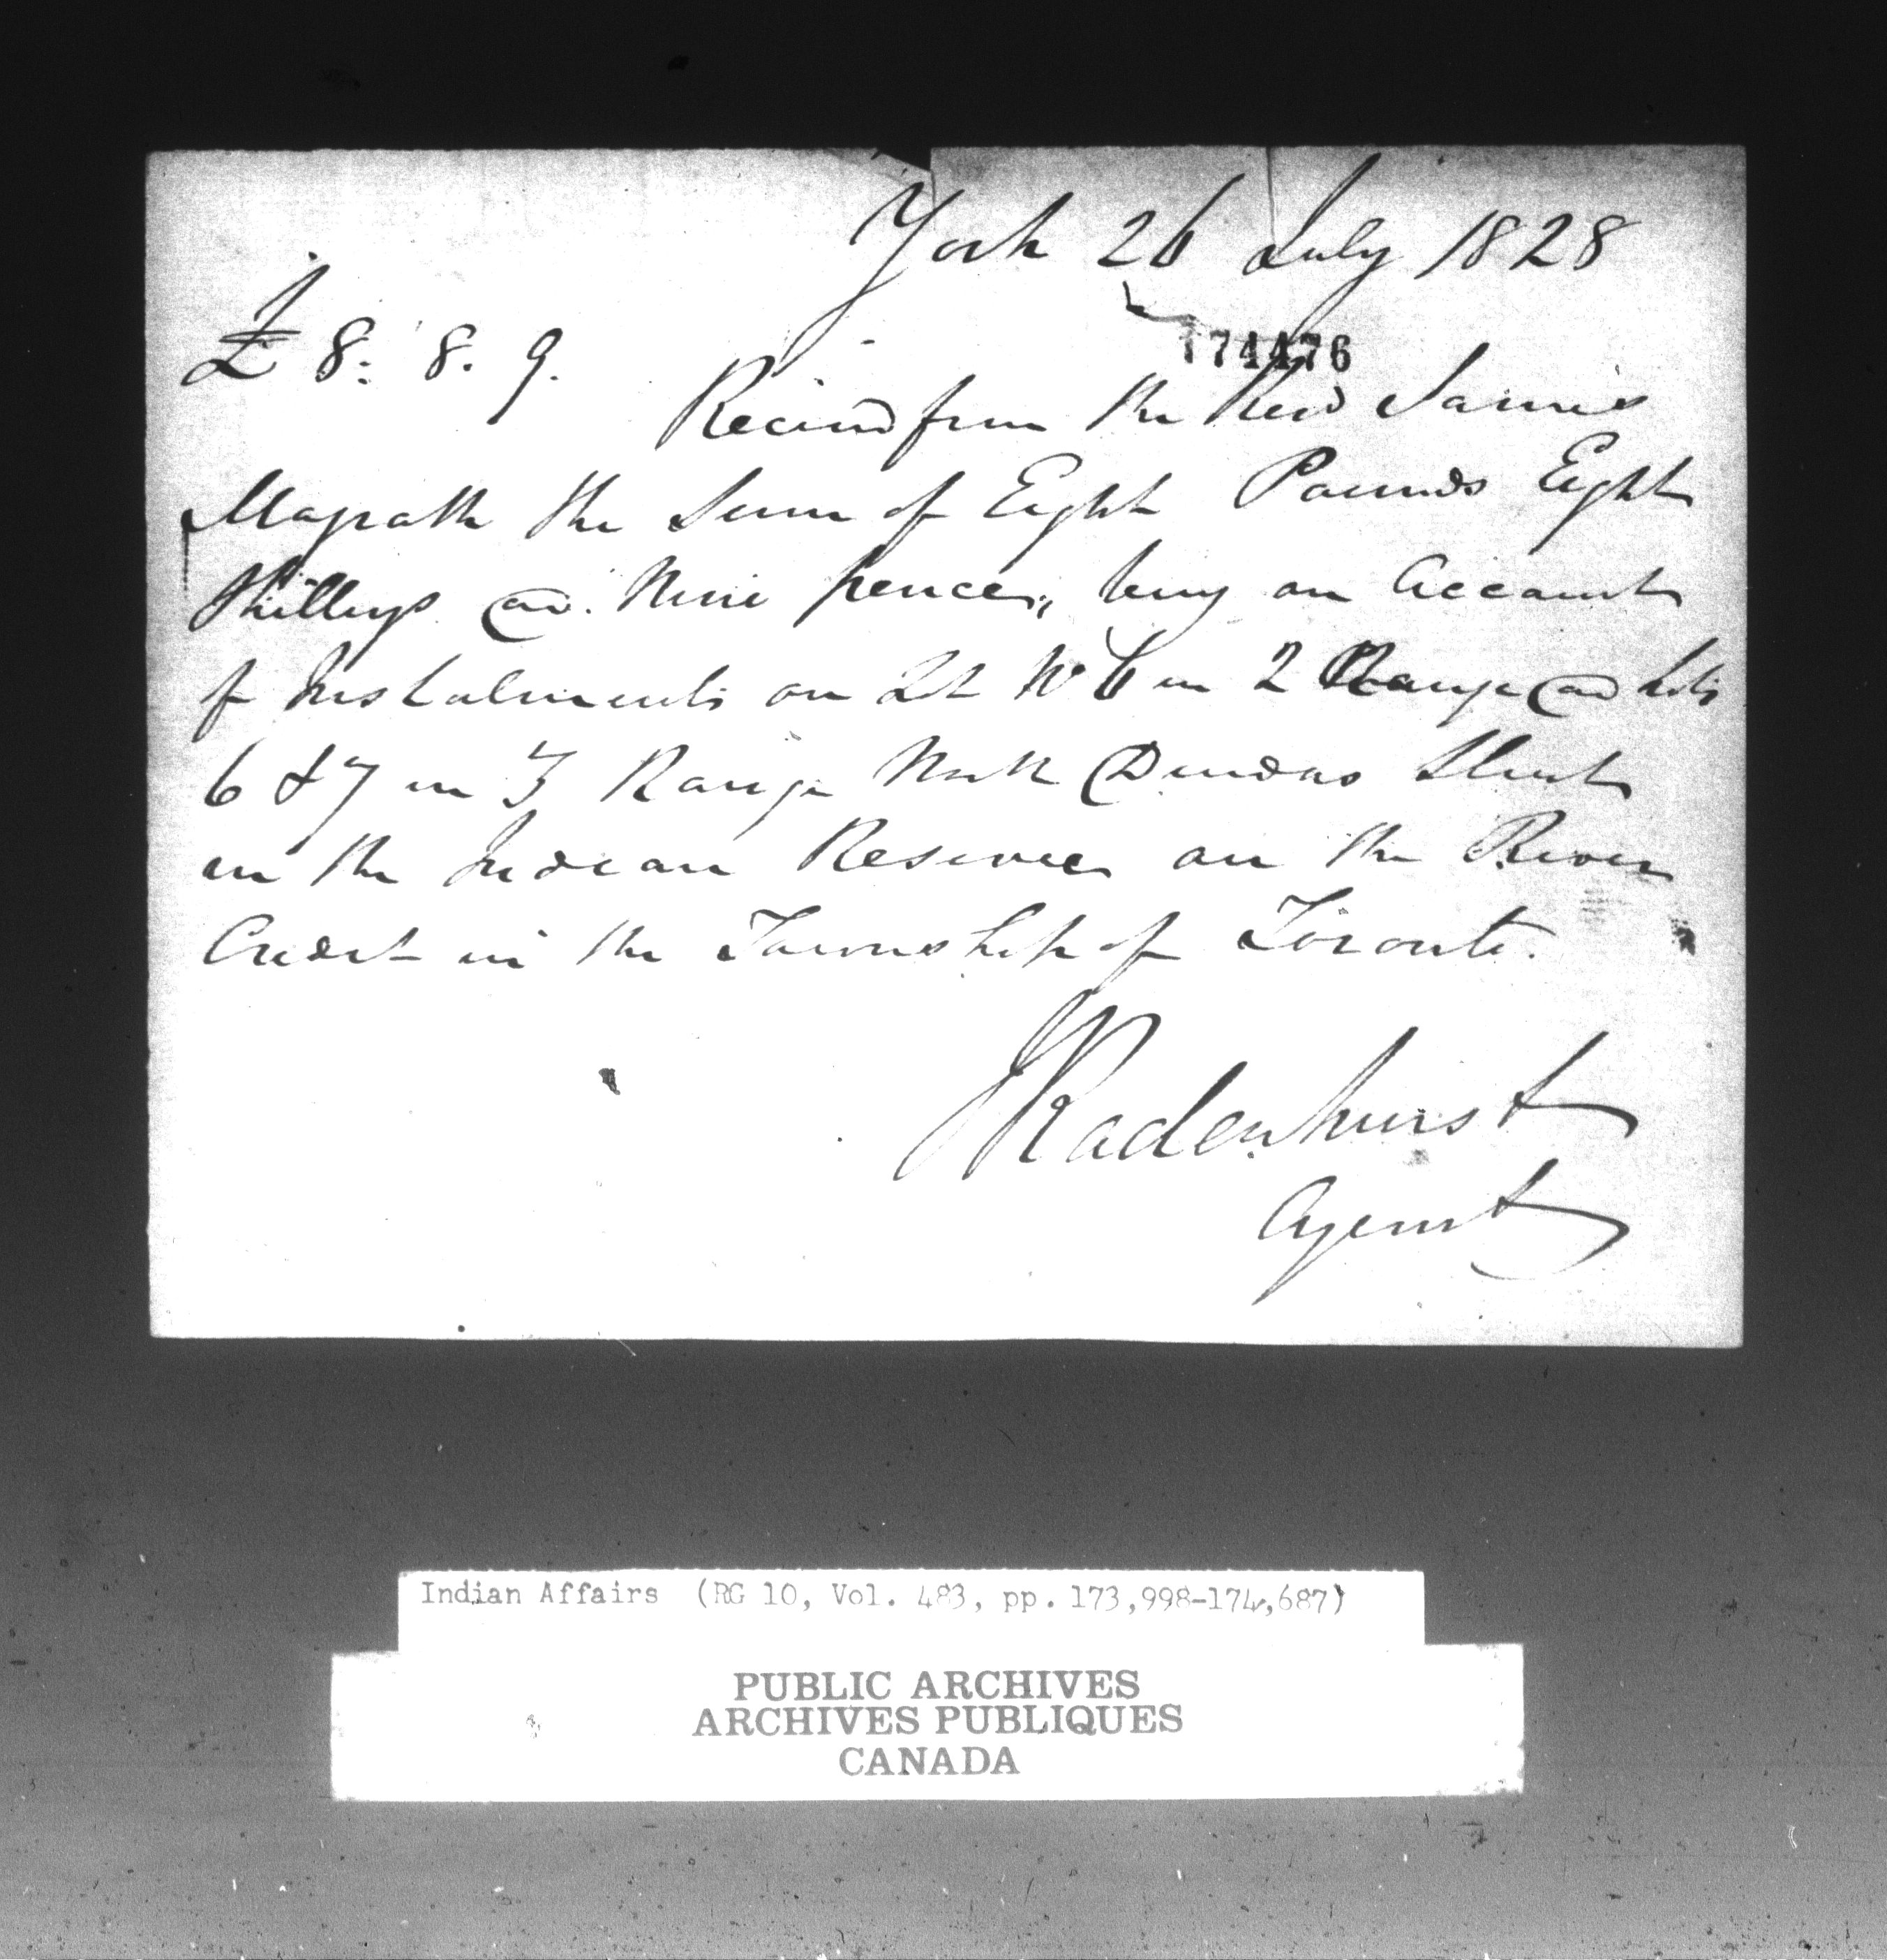 York 26 July 1828
£ 8. 8. 9.
174476
Received from the Revd James
Magrath the Sum of Eight Pounds Eight
Shillings and Nine pence, being on Account
of Instalments on Lot No 6 in 2 Range and Lots
6 & 7 in 3 Range North Dundas Street
in the Indian Reserve on the River
Credit in the Township of Toronto.
JRadenhurst
Agent
Indian Affairs (RG 10, Vol. 483, pp. 173,998-174,687)
PUBLIC ARCHIVES
ARCHIVES PUBLIQUES
CANADA